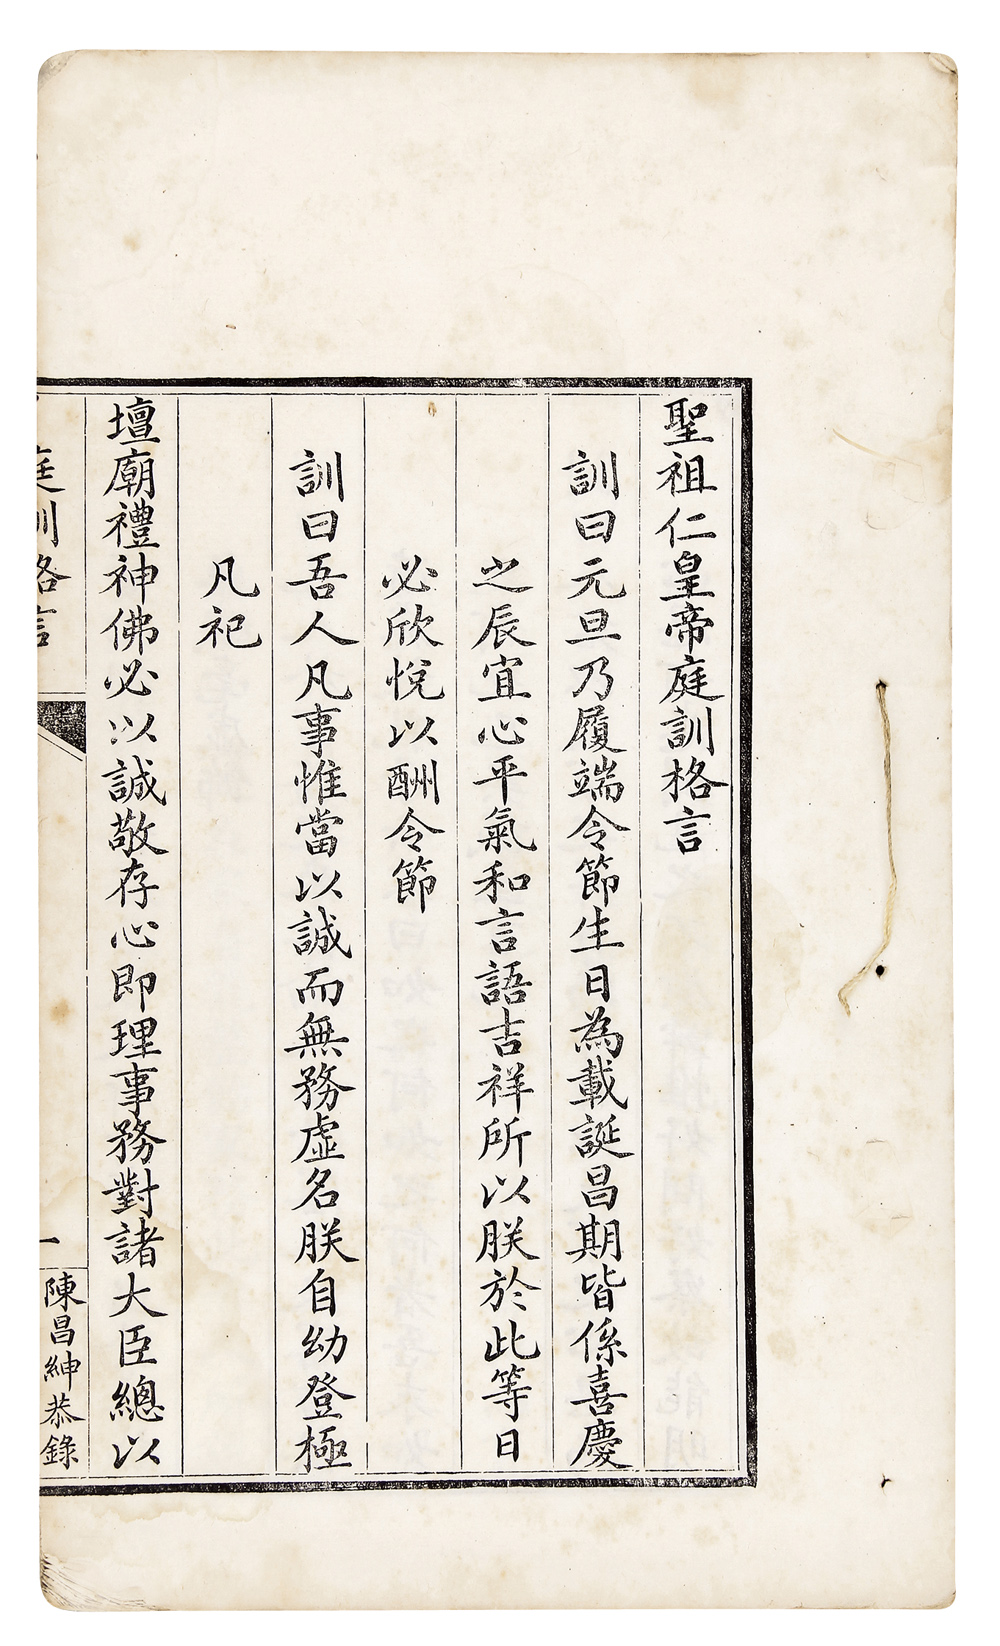 聖祖仁皇帝庭訓格言
訓曰元旦乃履端令節生日為載誕昌期皆係喜慶
之辰宜心平氣和言語吉祥所以朕於此等日
必欣悅以酬令節
訓曰吾人凡事惟當以誠而無務虛名朕自幼登極
凡祀
壇廟禮神佛必以誠敬存心即理事務對諸大臣總以
庭訓格言
一
陳昌紳恭錄